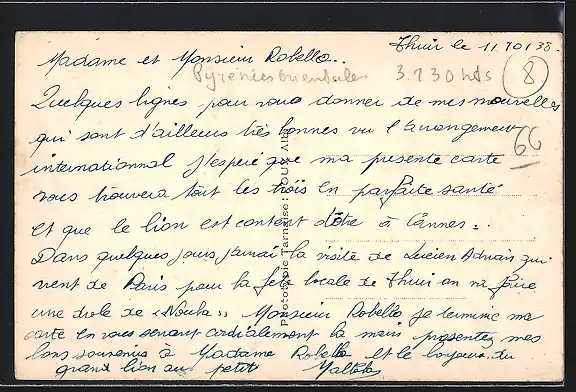 Thuir le 11.10.38.
Madame et Monsieur Robello..
Pyrénées orientales 3.230 hts
8
Quelques lignes pour vous donner de mes nouvelles
qui sont d'ailleurs très bonnes vu l'arrangement
66
international j'espère que ma présente carte
vous trouvera tout les trois en parfaite santé
et que le lion est content d'être à Cannes.
Dans quelques jours j'aurai la visite de Lucien Adrian qui
vient de Paris pour la fête locale de Thuir on va faire
une drole de "Nouba" Monsieur Robello je termine ma
carte en vous serrant cordialement la main présentez mes
bons souvenirs à Madame Robello et le bonjour du
grand lion au petit
Phototypie Tarnaise: